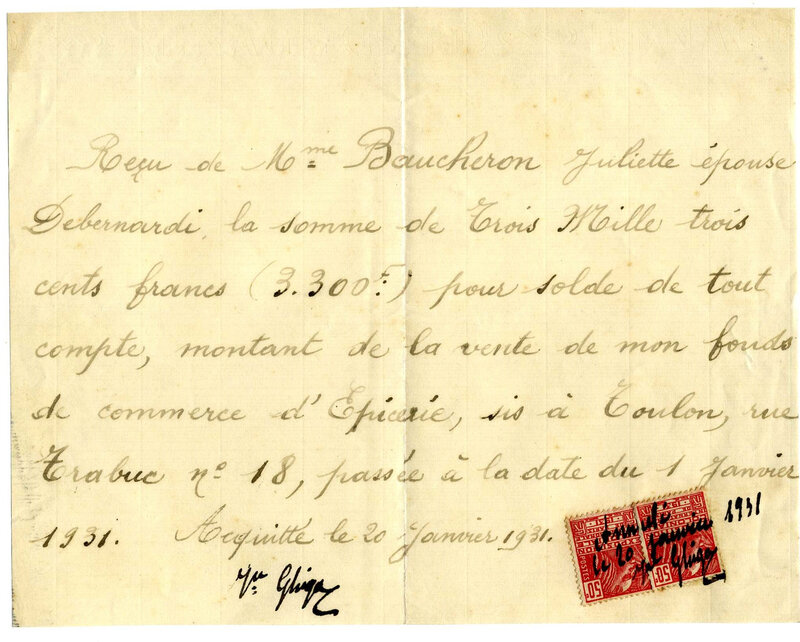 Reçu de Mme Baucheron Juliette épouse
Debernardi, la somme de Trois Mille trois
cents francs (3.300f.) pour solde de tout
compte, montant de la vente de mon fonds
de commerce d'Epicerie, sis à Toulon, rue
Trabuc no 18, passée à la date du 1 Janvier
1931. Acquitté le 20 Janvier 1931.
Annulé 1931
le 20 Janvier
Ghiga
POSTES 50 50
Ghiga